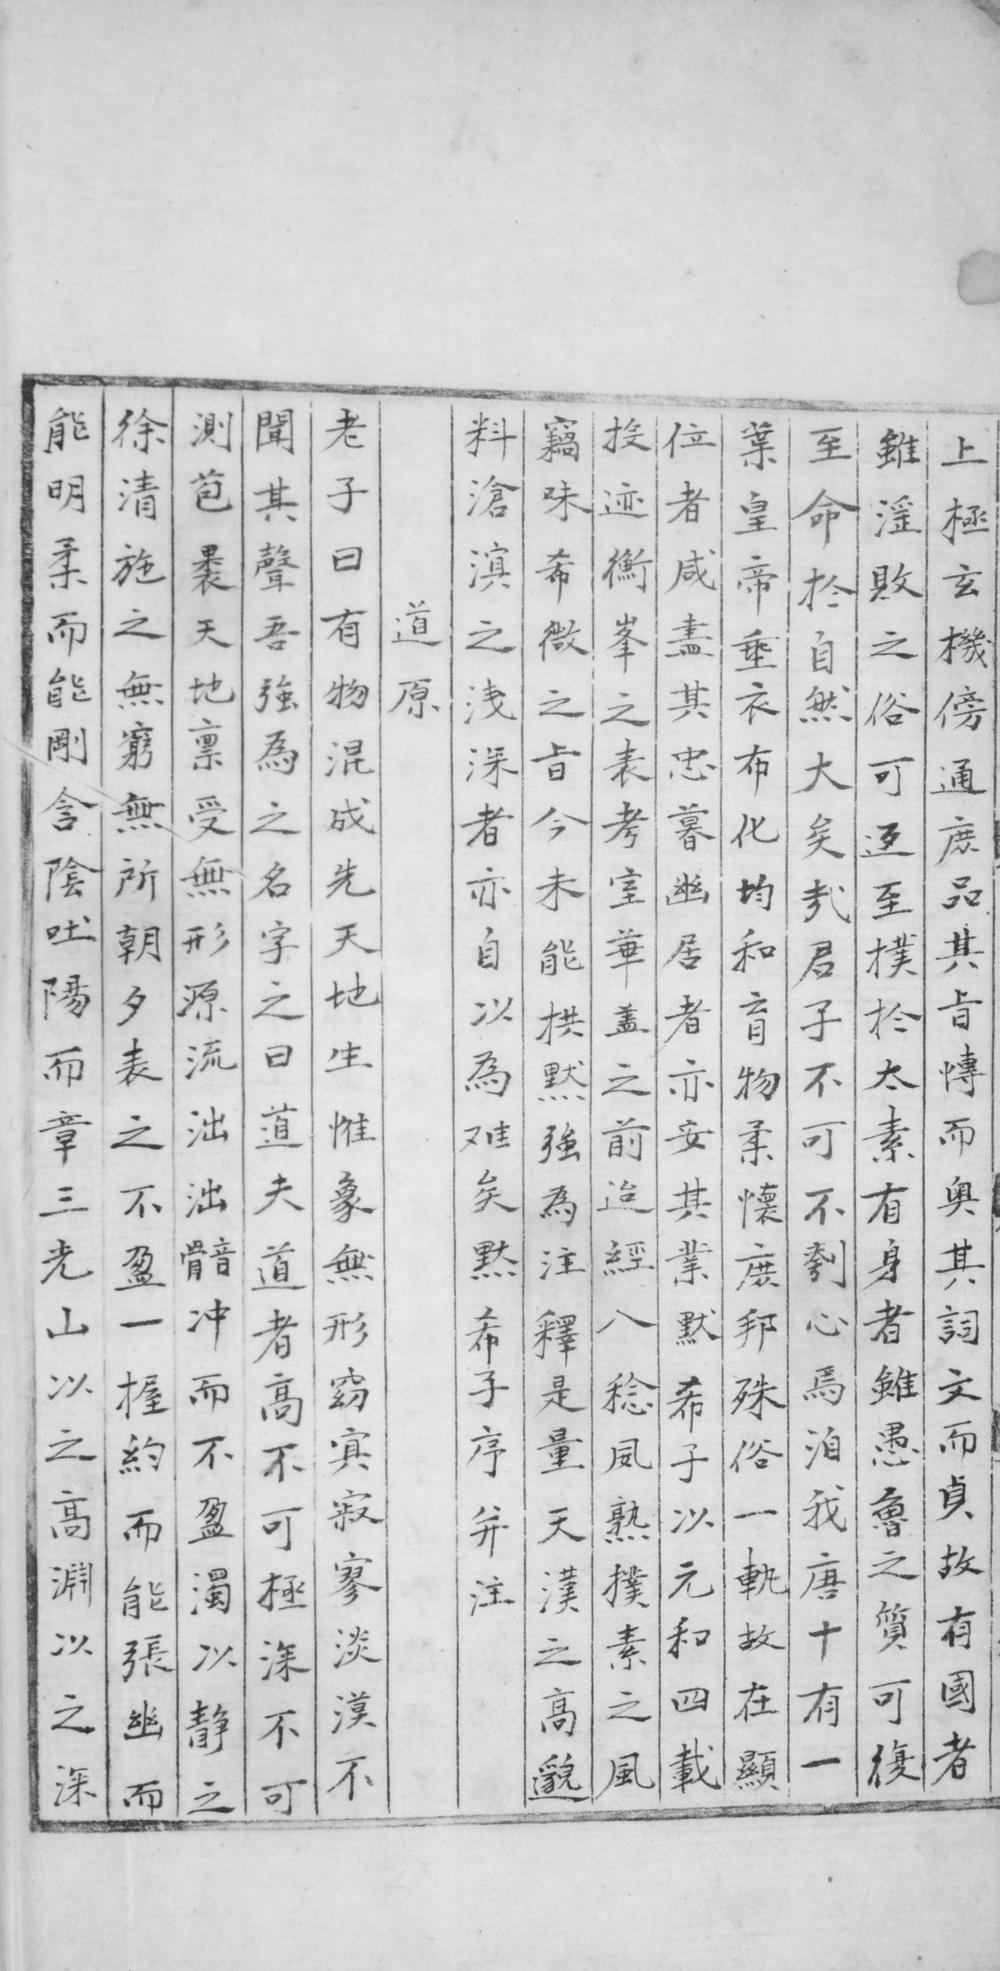 上極玄機傍通庶品其旨博而奧其詞文而貞故有國者
雖淫敗之俗可返至樸於太素有身者雖愚魯之質可復
至命於自然大矣哉君子不可不刳心焉洎我唐十有一
葉皇帝垂衣布化均和育物柔懷庶邦殊俗一軌故在顯
位者咸盡其忠暮幽居者亦安其業默希子以元和四載
投迹衡峯之表考室華蓋之前迨經八稔夙熟樸素之風
竊味希微之旨今未能拱默強為注釋是量天漢之高邈
料滄溟之浅深者亦自以為难矣默希子序并注
道原
老子曰有物混成先天地生惟象無形窈冥寂寥淡漠不
聞其聲吾強為之名字之曰道夫道者高不可極深不可
測苞裹天地禀受無形源流泏泏冲而不盈濁以靜之
徐清施之無窮無所朝夕表之不盈一握約而能張幽而
能明柔而能剛含陰吐陽而章三光山以之高淵以之深